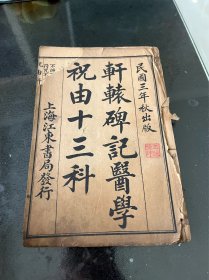 民國三年秋出版
軒轅碑記醫學
祝由十三科
上海江東書局發行